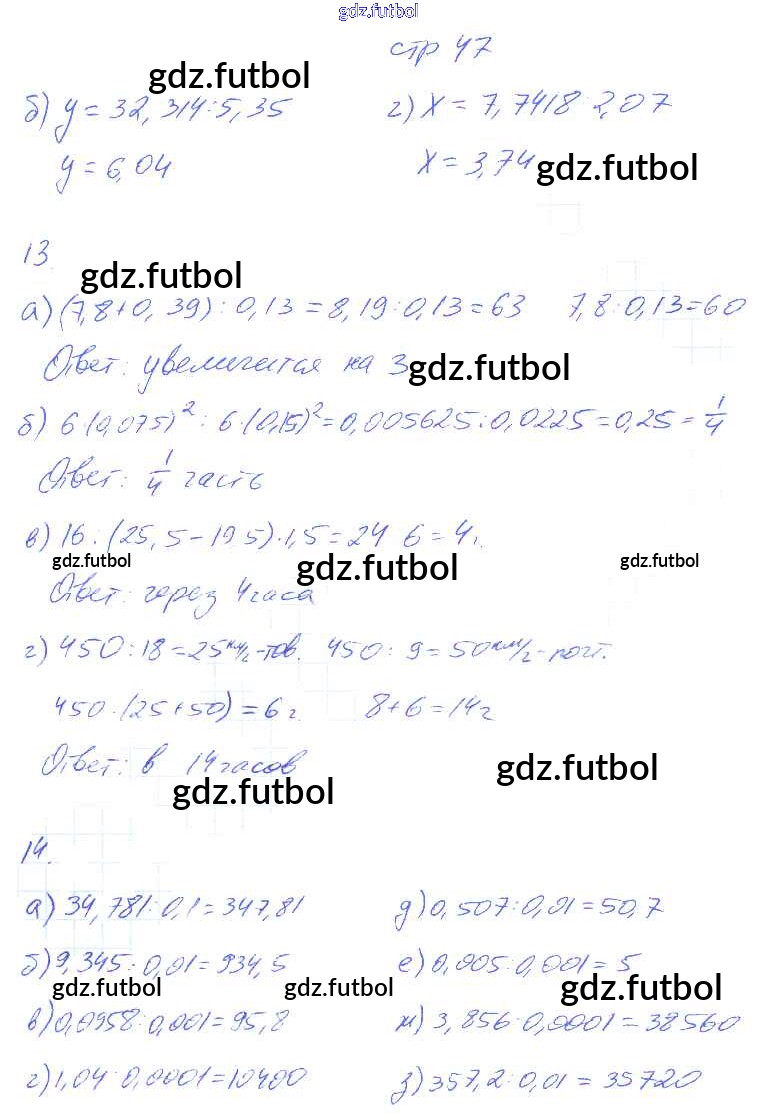 gdz.futbol
стр 47
gdz.futbol
б) y = 32,314:5,35 г) x = 7,7418:2,07
y = 6,04 x = 3,74
gdz.futbol
13.
gdz.futbol
а) (7,8+0,39):0,13=8,19:0,13=63 7,8:0,13=60
Ответ: увеличится на 3
gdz.futbol
б) 6·(0,075)²:6·(0,15)²=0,005625:0,0225=0,25=1/4
Ответ: 1/4 часть
в) 16:(25,5-19,5)·1,5=24:6=4ч.
gdz.futbol gdz.futbol gdz.futbol
Ответ: через 4 часа
г) 450:18=25км/ч-тов. 450:9=50км/ч-почт.
450:(25+50)=6ч. 8+6=14ч
Ответ: в 14 часов
gdz.futbol
gdz.futbol
14.
а) 34,781:0,1=347,81 д) 0,507:0,01=50,7
б) 9,345:0,01=934,5 е) 0,005:0,001=5
gdz.futbol gdz.futbol gdz.futbol
в) 0,0958:0,001=95,8 ж) 3,856:0,0001=38560
г) 1,04:0,0001=10400 з) 357,2:0,01=35720